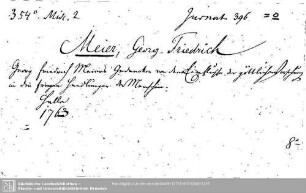 3.54° Misc. 2 Jurnat. 396 =o
Meier, Georg Friedrich
Georg Friedrich Meiers Gedancken von dem Einflusse der göttlichen Vorsehung
in die freyen Handlungen der Menschen.
Halle
1763
8°
Sächsische Landesbibliothek -
Staats- und Universitätsbibliothek Dresden